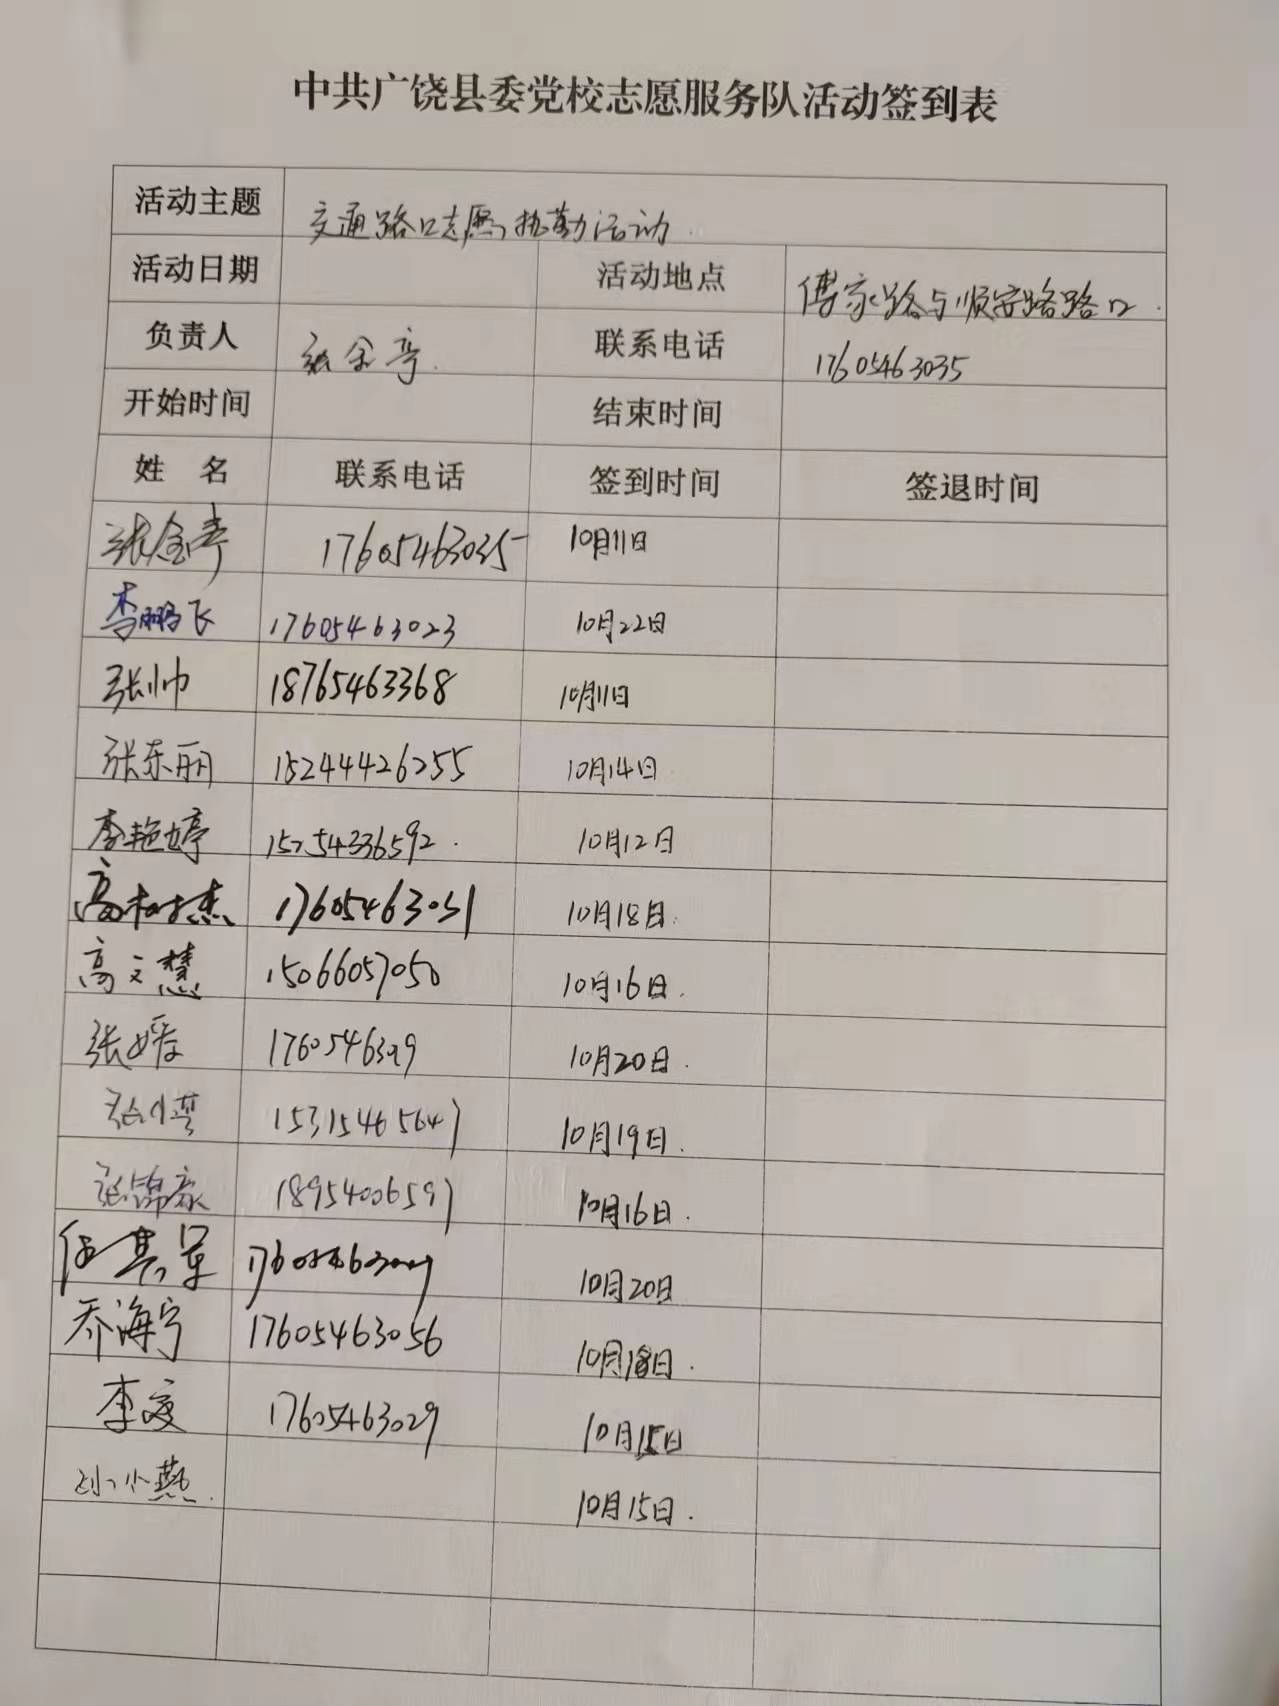 中共广饶县委党校志愿服务队活动签到表
活动主题 交通路口志愿执勤活动
活动日期 活动地点 傅家路与顺安路路口
负责人 张金亭 联系电话 17605463035
开始时间 结束时间
姓 名 联系电话 签到时间 签退时间
张金亭 17605463035 10月11日
李鹏飞 17605463023 10月22日
张帅 18765463368 10月11日
张东丽 15244426255 10月14日
李艳婷 15254336592 10月12日
高树杰 17605463031 10月18日
高文慧 15066057050 10月16日
张媛 10月20日
15315465647 10月19日
张锦家 18954006597 10月16日
10月20日
乔海宁 17605463056 10月18日
李霞 17605463029 10月15日
孙小燕 10月15日